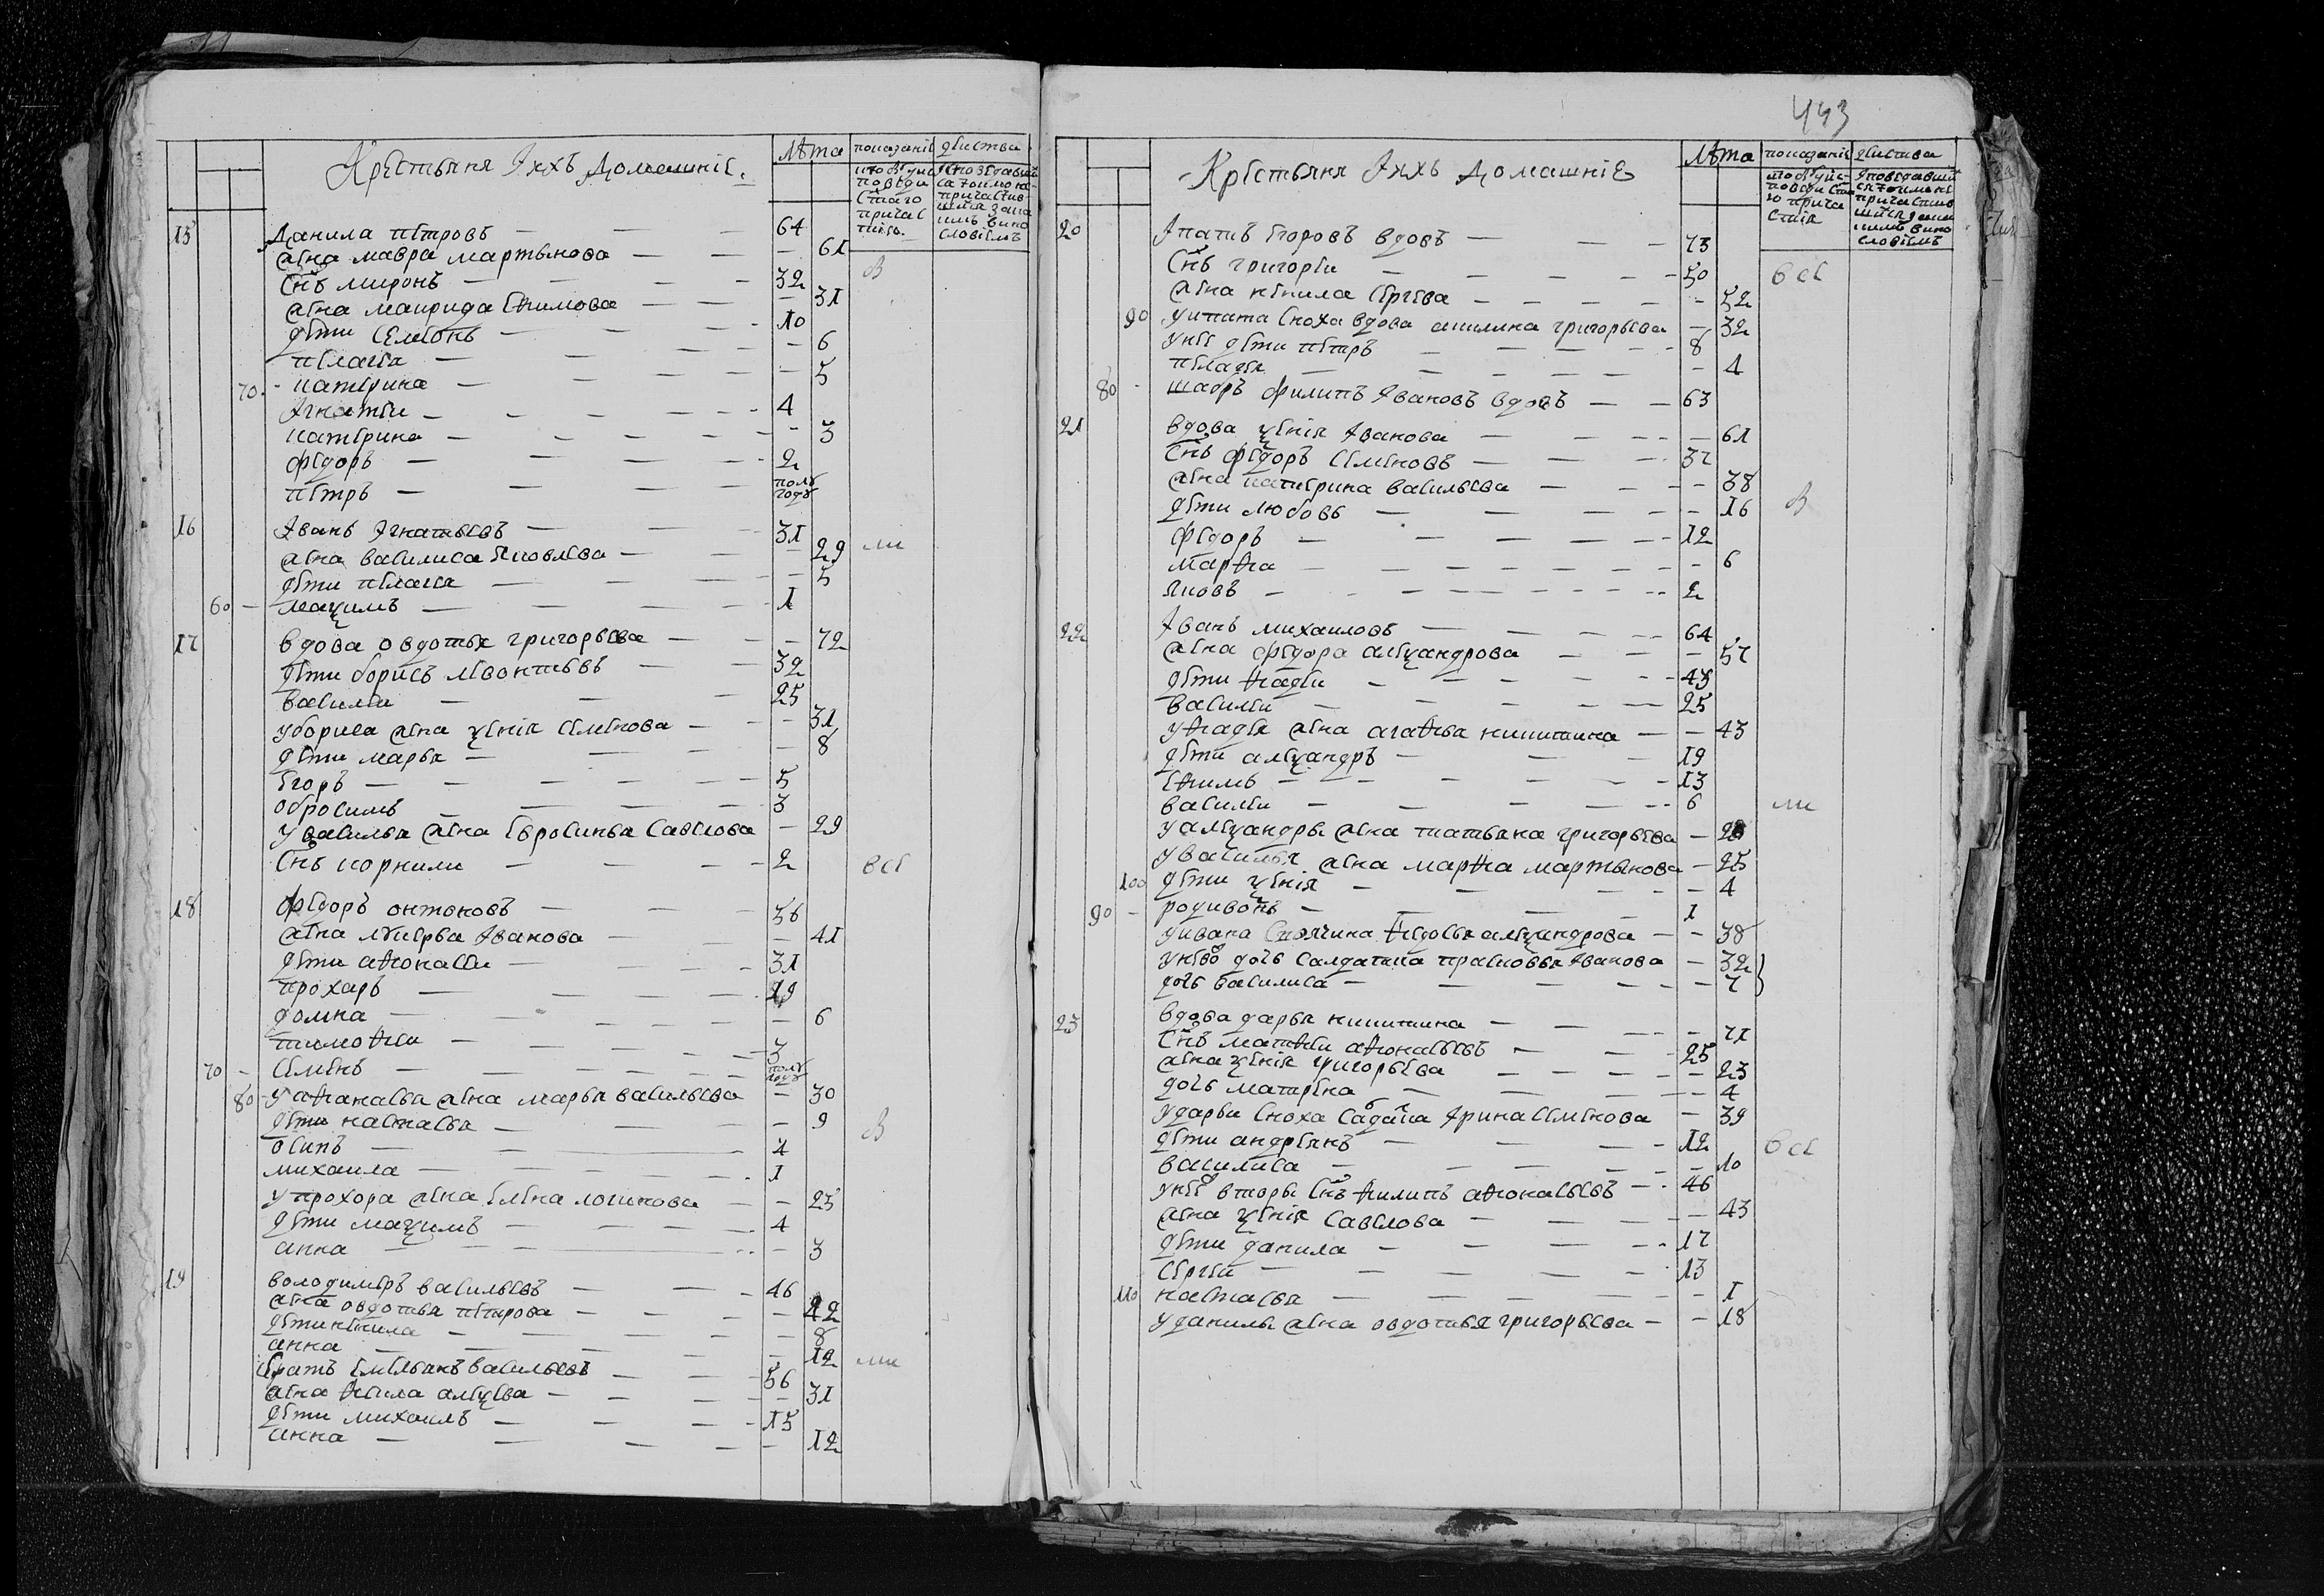 443
Крестьяня Ихъ Домашние.
Лѣта
показание
действа
кто были
исповедавши
15 Данила петровъ 64
жена мавра мартынова 61
Снъ миронъ 32
жена маврида ефимова 31
дети Семионъ 10
пелагея 6
70 катерина 5
Игнатеи 4
катерина 3
федоръ 2
петръ полъ годъ
16 Иванъ Игнатьевъ 31
жена василиса Яковлева 29
дети пелагея 5
60 маѯимъ 1
17 вдова овдотья григорьева 72
дети борисъ левонтьевъ 32
василеи 25
уборисa жена ѯения Семенова 31
дети марья 8
Егоръ 5
обросимъ 3
у василья жена Евросинья Савелова 29
Снъ корнили 2
все
18 федоръ онтоновъ 56
жена лукерья Иванова 41
дети афонасеи 31
прохаръ 19
домна 6
тимофеи 3
70 Семенъ полъ годъ
80 у афанасья жена марья васильева 30
дети настасья 9
осипъ 4
михаила 1
у прохора жена Елена логинова 23
дети маѯимъ 4
анна 3
19 володимеръ васильевъ 46
жена овдотья петрова 42
дети ненила 8
анна 12
братъ Емельянъ васильевъ 56
жена фекла алеѯева 31
дети михаилъ 15
анна 12
Крестьяня Ихъ Домашние
Лѣта
показание
действа
20 Ипатъ Егоровъ вдовъ 73
Снъ григореи 50
все
жена ненила Сергева 52
90 у ипата Сноха вдова акилина григорьева 32
у нее дети петръ 8
пелагея 4
80 шабръ филипъ Ивановъ вдовъ 63
21 вдова ѯения Иванова 61
Снъ федоръ Семеновъ 37
жена катерина васильева 38
дети любовь 16
федоръ 12
марфа 6
яковъ 2
22 Иванъ михаиловъ 64
жена федора алеѯандрова 57
дети фадеи 43
василеи 25
у фадея жена агафья никитина 43
дети алеѯандръ 19
Ефимъ 13
василеи 6
у алеѯандры жена татьяна григорьева 20
у василья жена марфа мартынова 25
100 дети ѯения 4
90 родивонъ 1
у ивана Своячина федосья алеѯандрова 38
у него дочь Салдатка прасковья Иванова 32
дочь василиса 7
23 вдова дарья никитина 71
Снъ матфеи афонасьевъ 25
жена ѯения григорьева 23
дочь матрена 4
у дарьи Сноха Садатка Ирина Семенова 39
дети андреянъ 12
все
василиса 10
у нее вторы Снъ филипъ афонасьевъ 46
жена ѯения Савелова 43
дети данила 17
Сергеи 13
110 настасья 1
у данилы жена овдотья григорьева 18